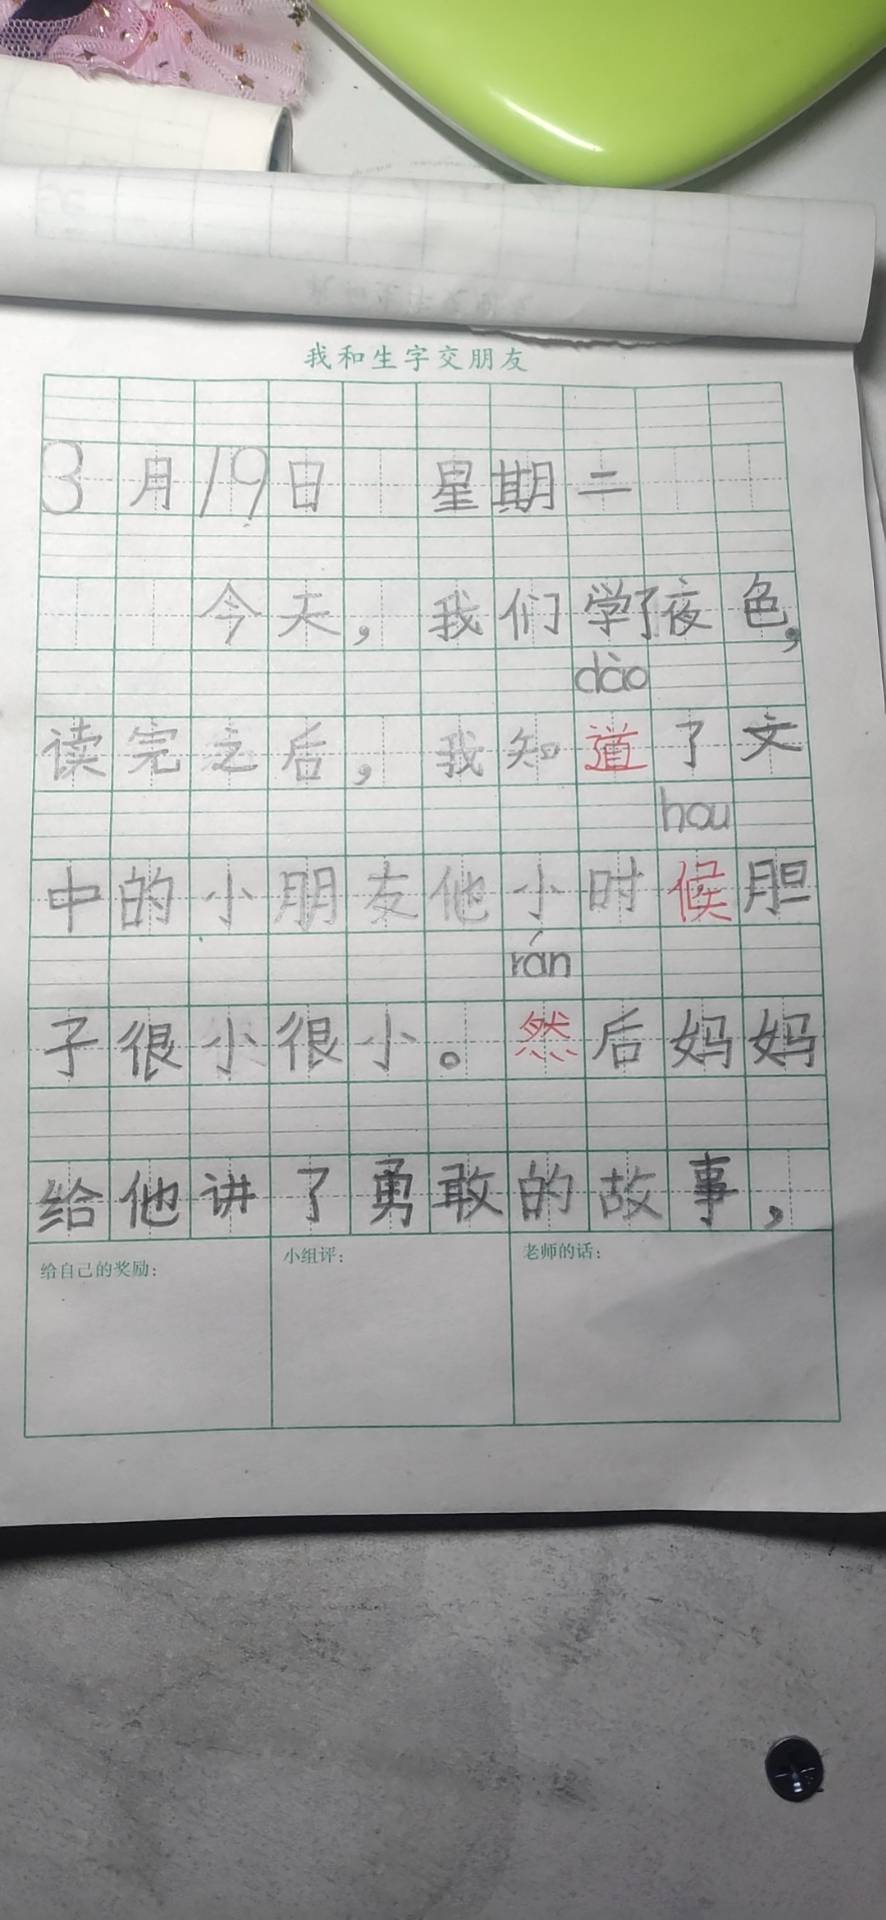 我和生字交朋友
3月19日 星期二
今天，我们学了夜色，
dào
读完之后，我知道了文
hou
中的小朋友他小时候胆
rán
子很小很小。然后妈妈
给他讲了勇敢的故事，
给自己的奖励： 小组评： 老师的话：